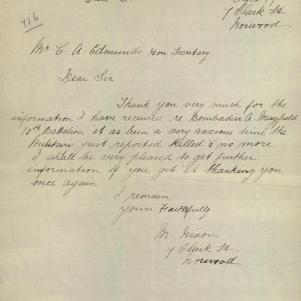 7 Clark St
Norwood
Mr C A Edmunds Hon Secutary
Dear Sir
Thank you very much for the
information I have received re Bombadier A. Mayfield
10th Battalion it as been a very anxious time the
Military just reported killed & no more
I shall be very pleased to get further
information if you get it thanking you
once again
I remain
yours Faithfully
M. Nixon
7 Clark St
Norwood